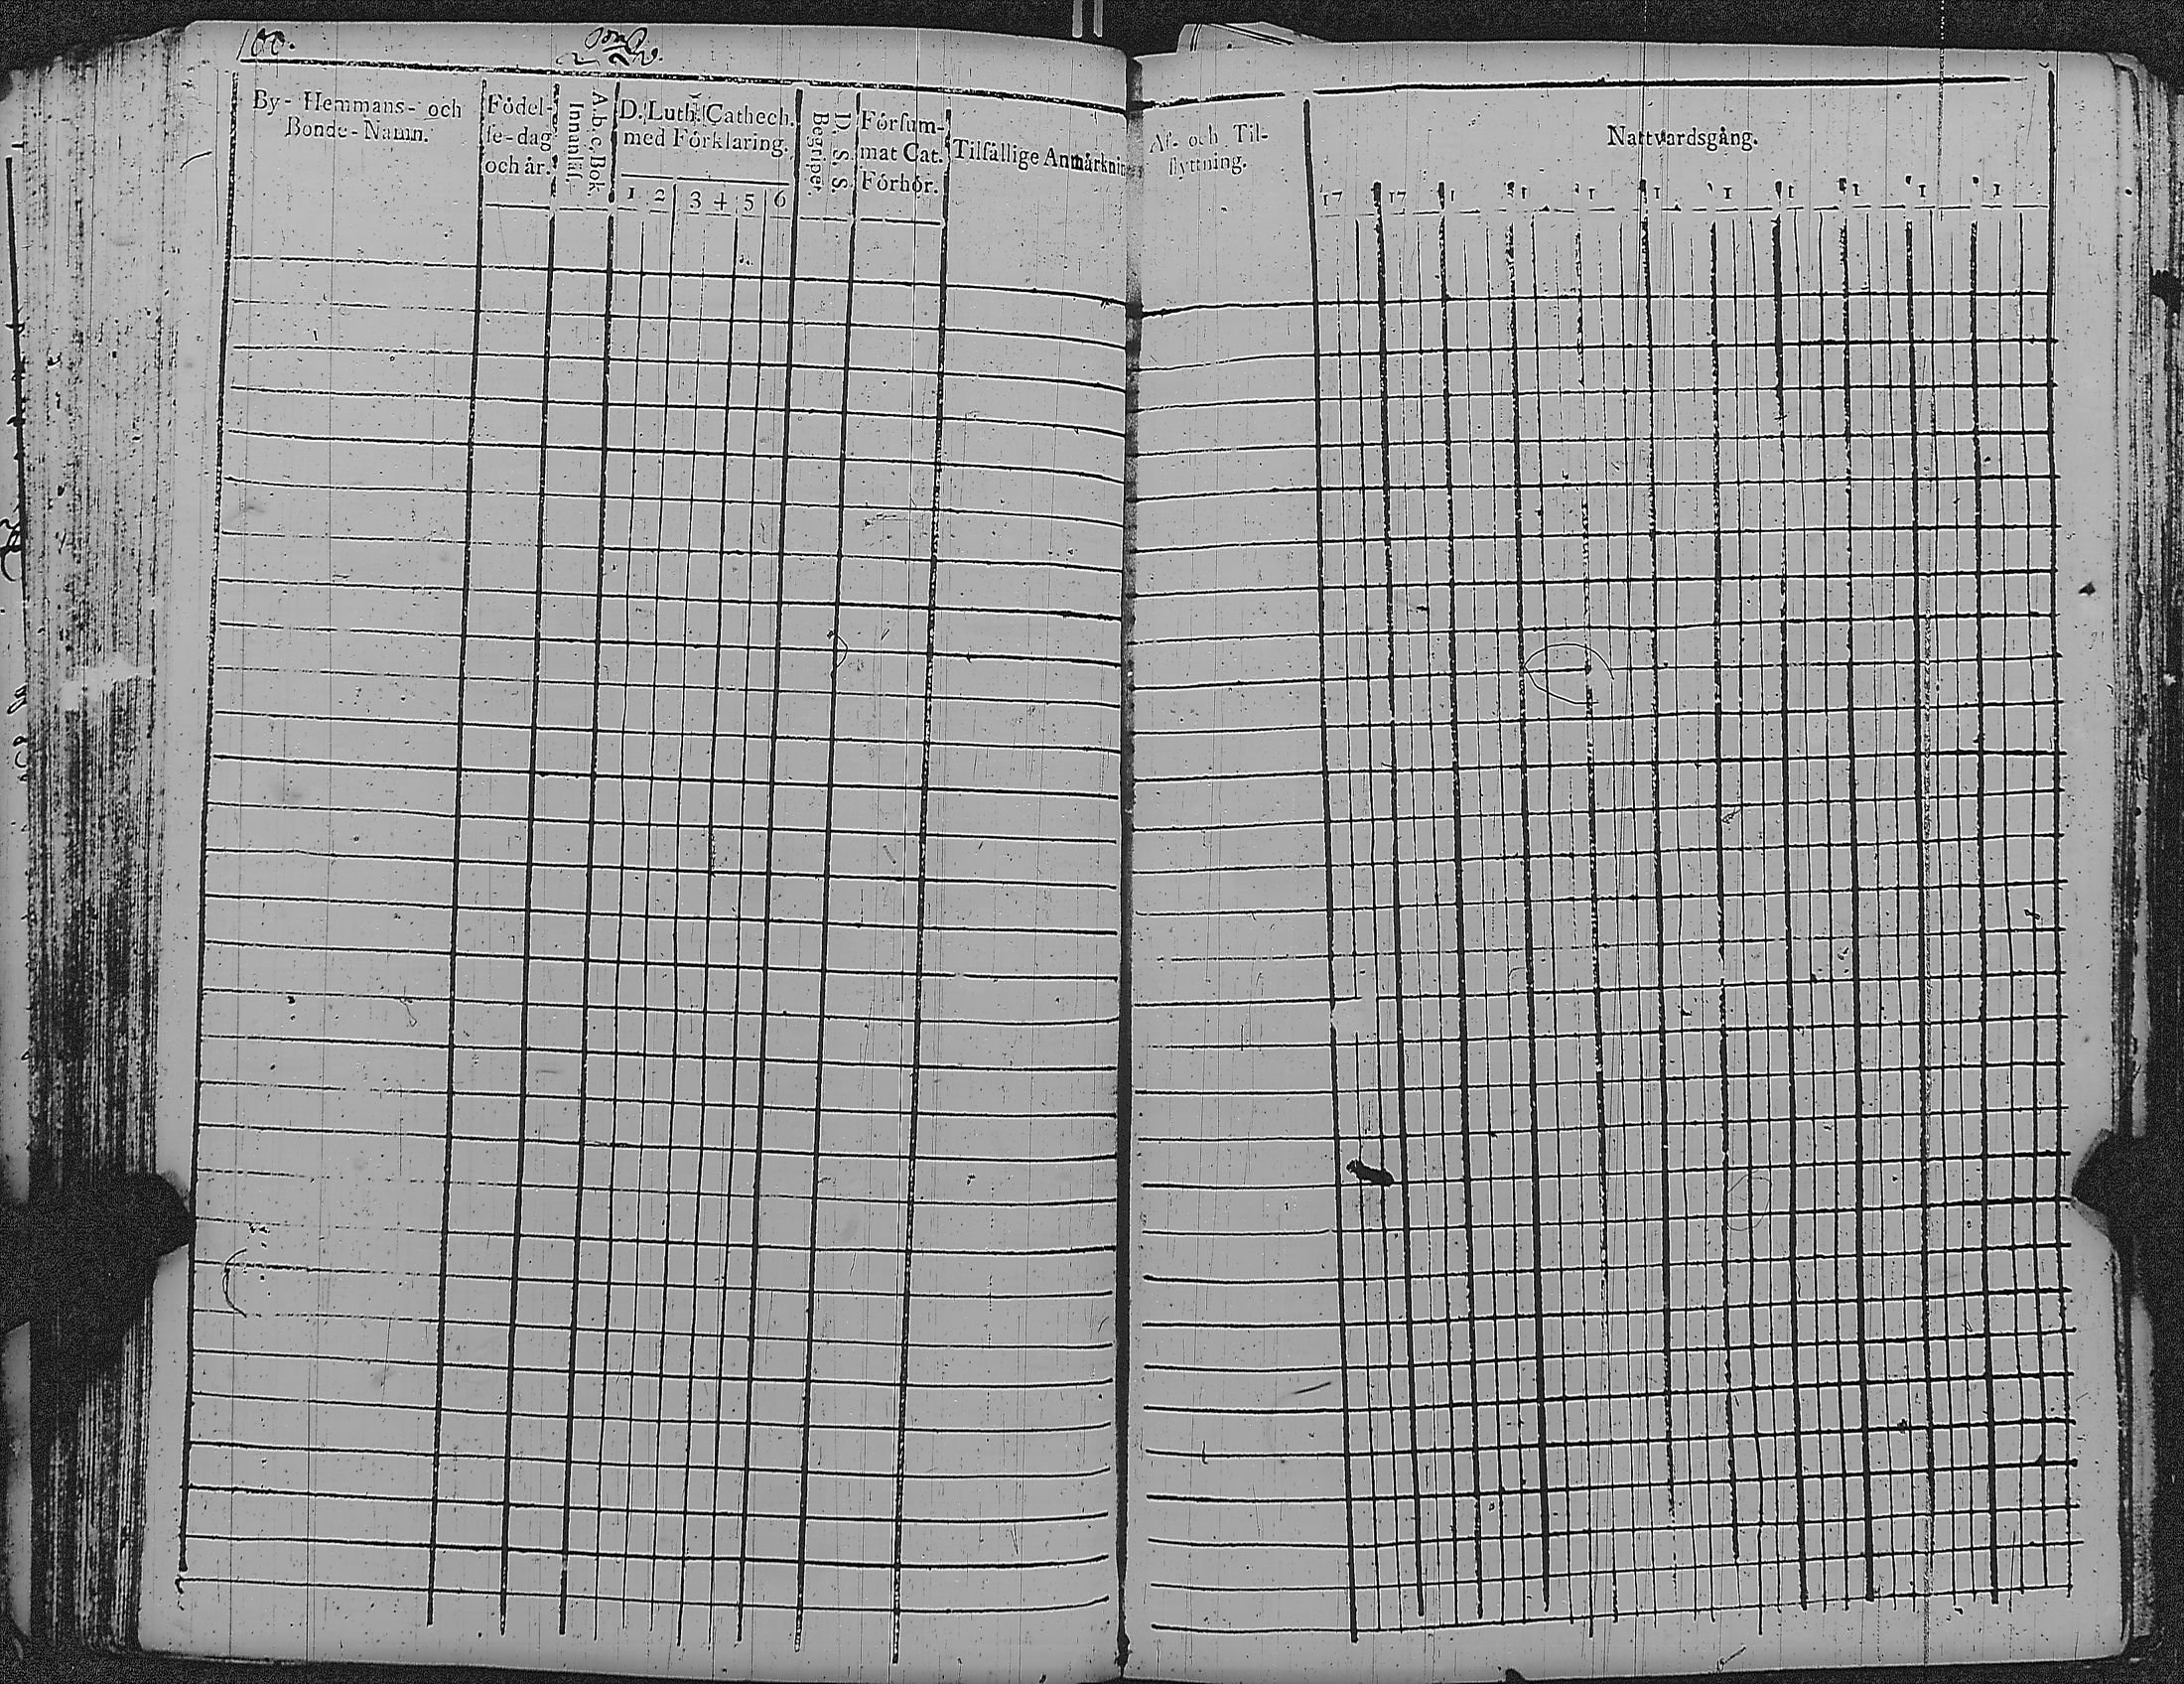 100.
By- Hemmans- och
Bonde-Namn.
Födel-
se-dag
och år.
A.b.c.Bok.
Innanläs.
D. Luth. Cathech.
med Förklaring.
1 2 3 4 5 6
D. S. S. S.
Begriper
Försum-
mat Cat.
Förhör.
Tilfällige Anmärknin
Af- och Til-
flyttning.
Nattvardsgång.
17 17 1 1 1 1 1 1 1 1 1